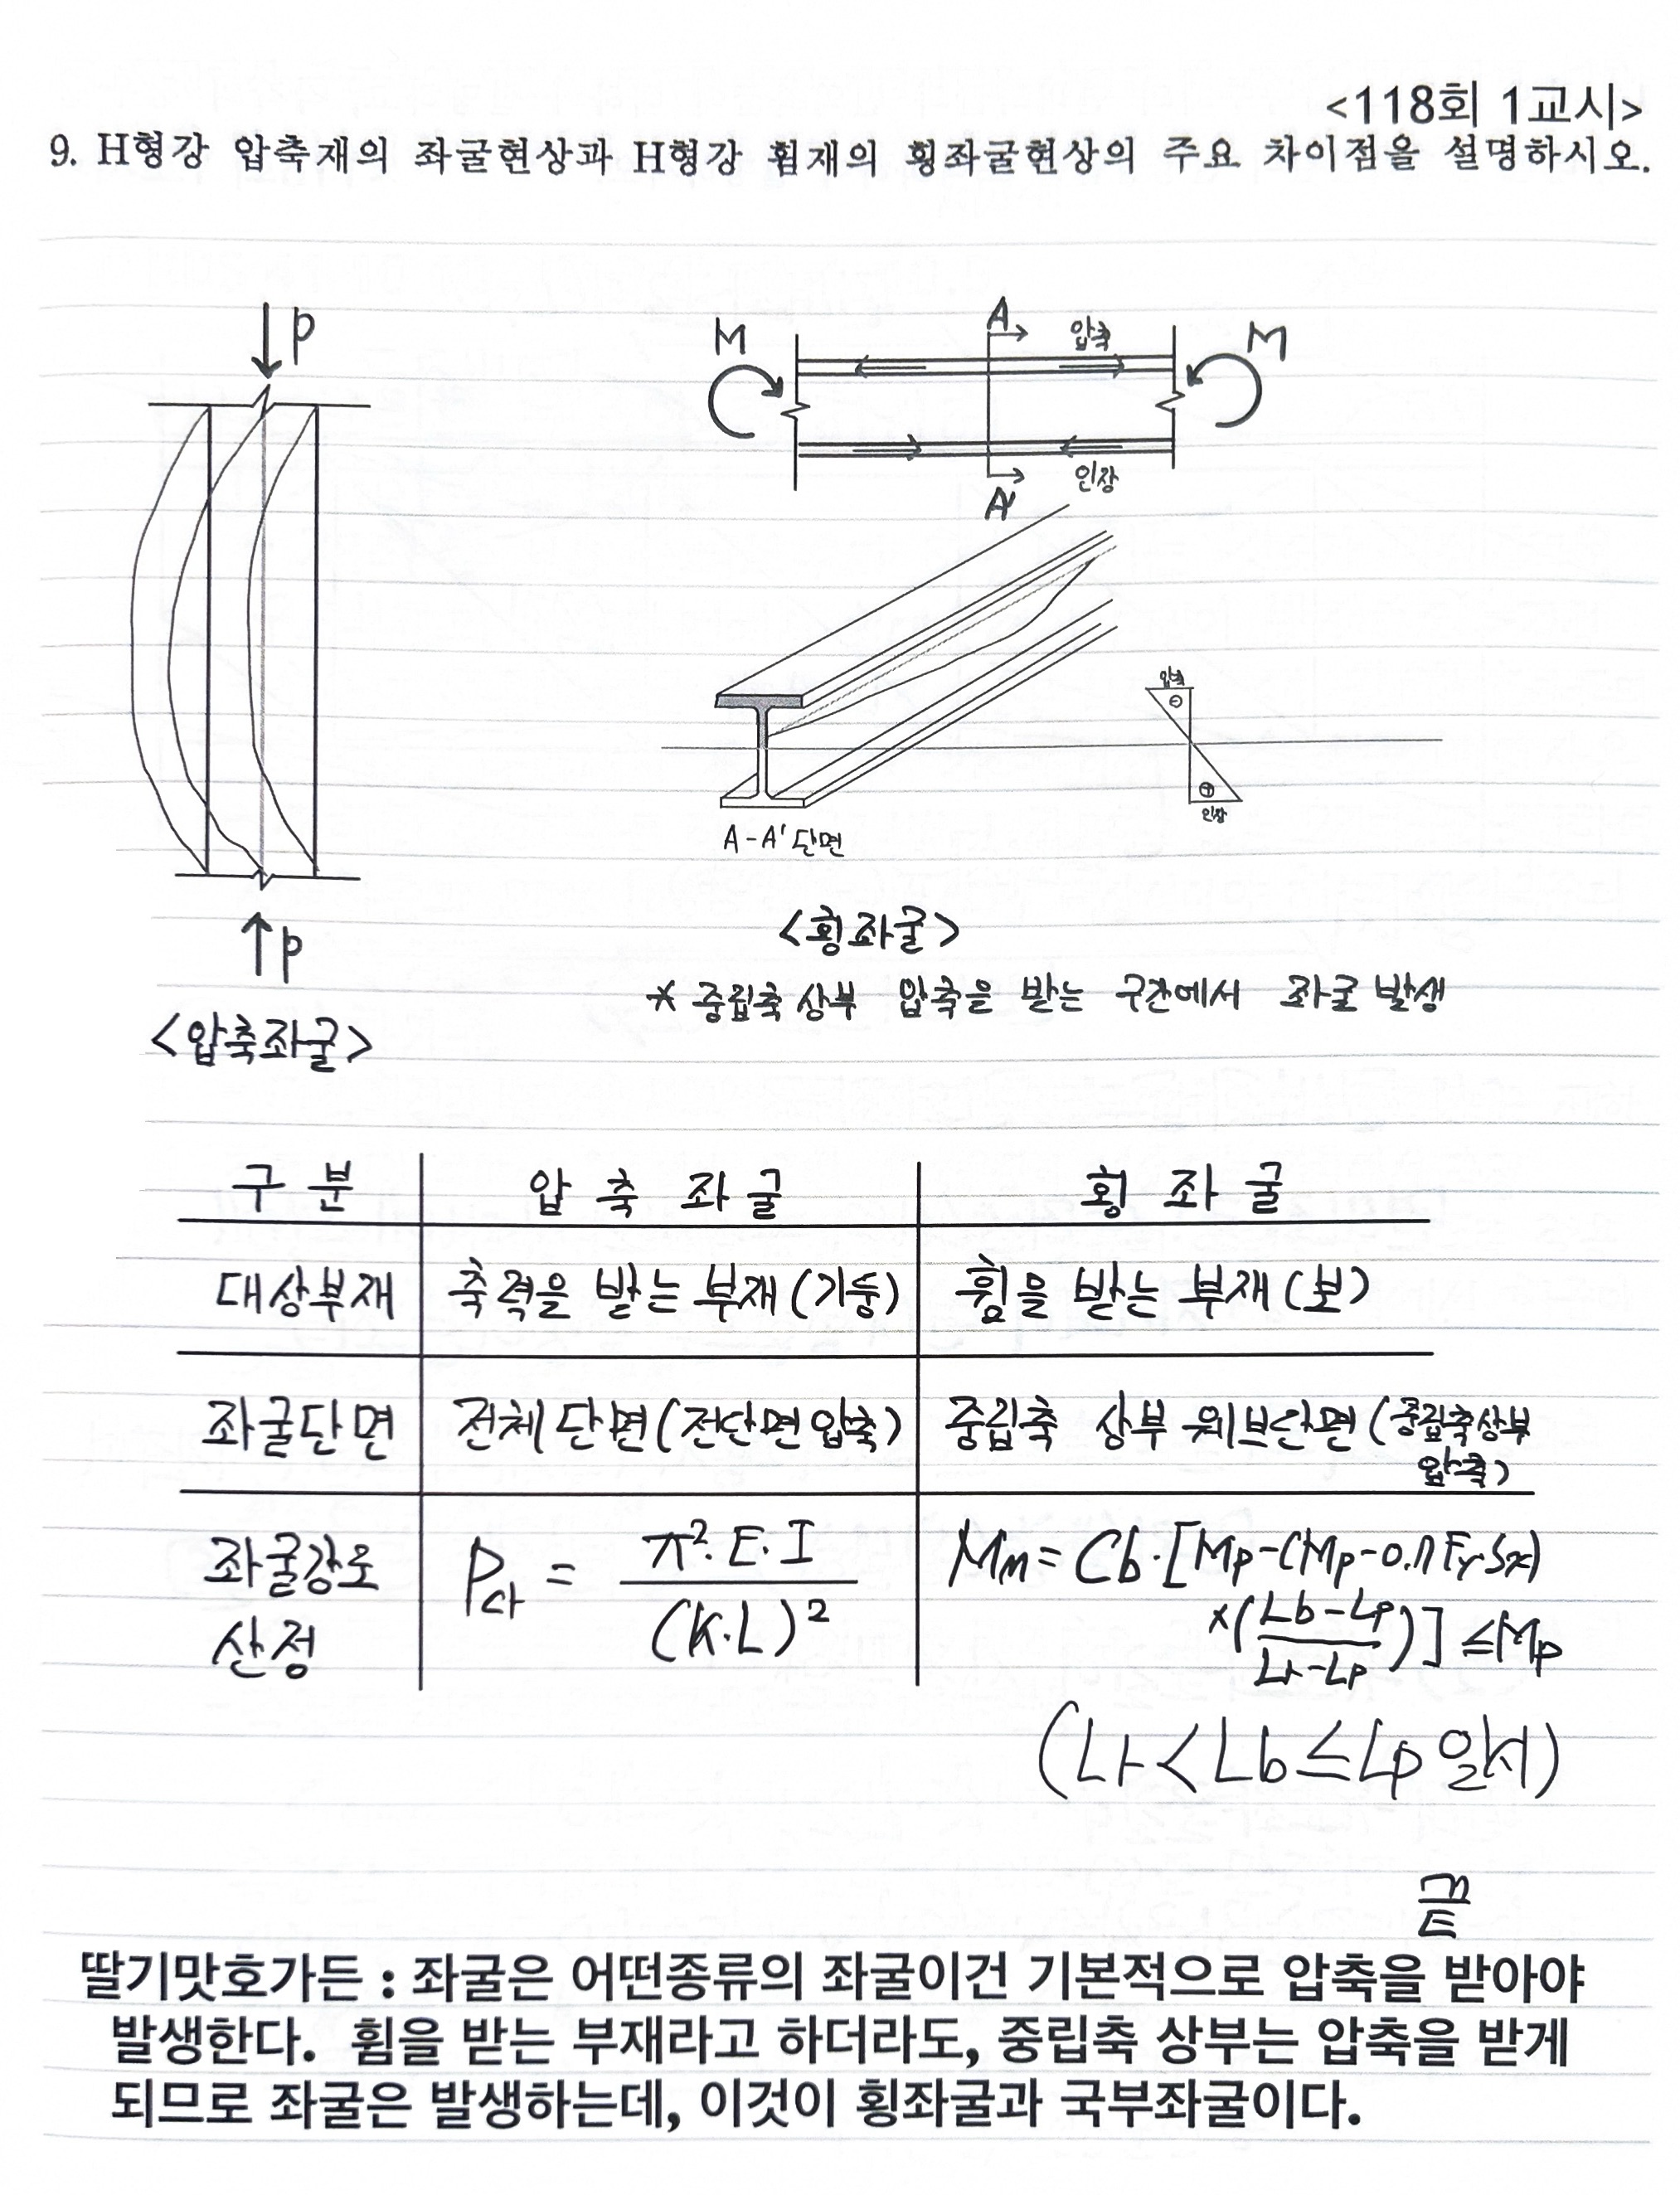 <118회 1교시>
9. H형강 압축재의 좌굴현상과 H형강 휨재의 횡좌굴현상의 주요 차이점을 설명하시오.
P
M
A
압축
M
인장
A'
압축
⊖
⊕
인장
A-A' 단면
P
<압축좌굴>
<횡좌굴>
* 중립축 상부 압축을 받는 구간에서 좌굴 발생
구분 압축좌굴 횡좌굴
대상부재 축력을 받는 부재(기둥) 휨을 받는 부재(보)
좌굴단면 전체단면(전단면압축) 중립축 상부 웨브단면(중립축상부
압축)
좌굴강도
산정
Pcr = π²·E·I / (K·L)²
Mn = Cb·[Mp-(Mp-0.7Fy·Sx)
×(Lb-Lp / Lr-Lp)] ≤Mp
(Lr < Lb ≤ Lp 일시)
끝
딸기맛호가든 : 좌굴은 어떤종류의 좌굴이건 기본적으로 압축을 받아야
발생한다. 휨을 받는 부재라고 하더라도, 중립축 상부는 압축을 받게
되므로 좌굴은 발생하는데, 이것이 횡좌굴과 국부좌굴이다.